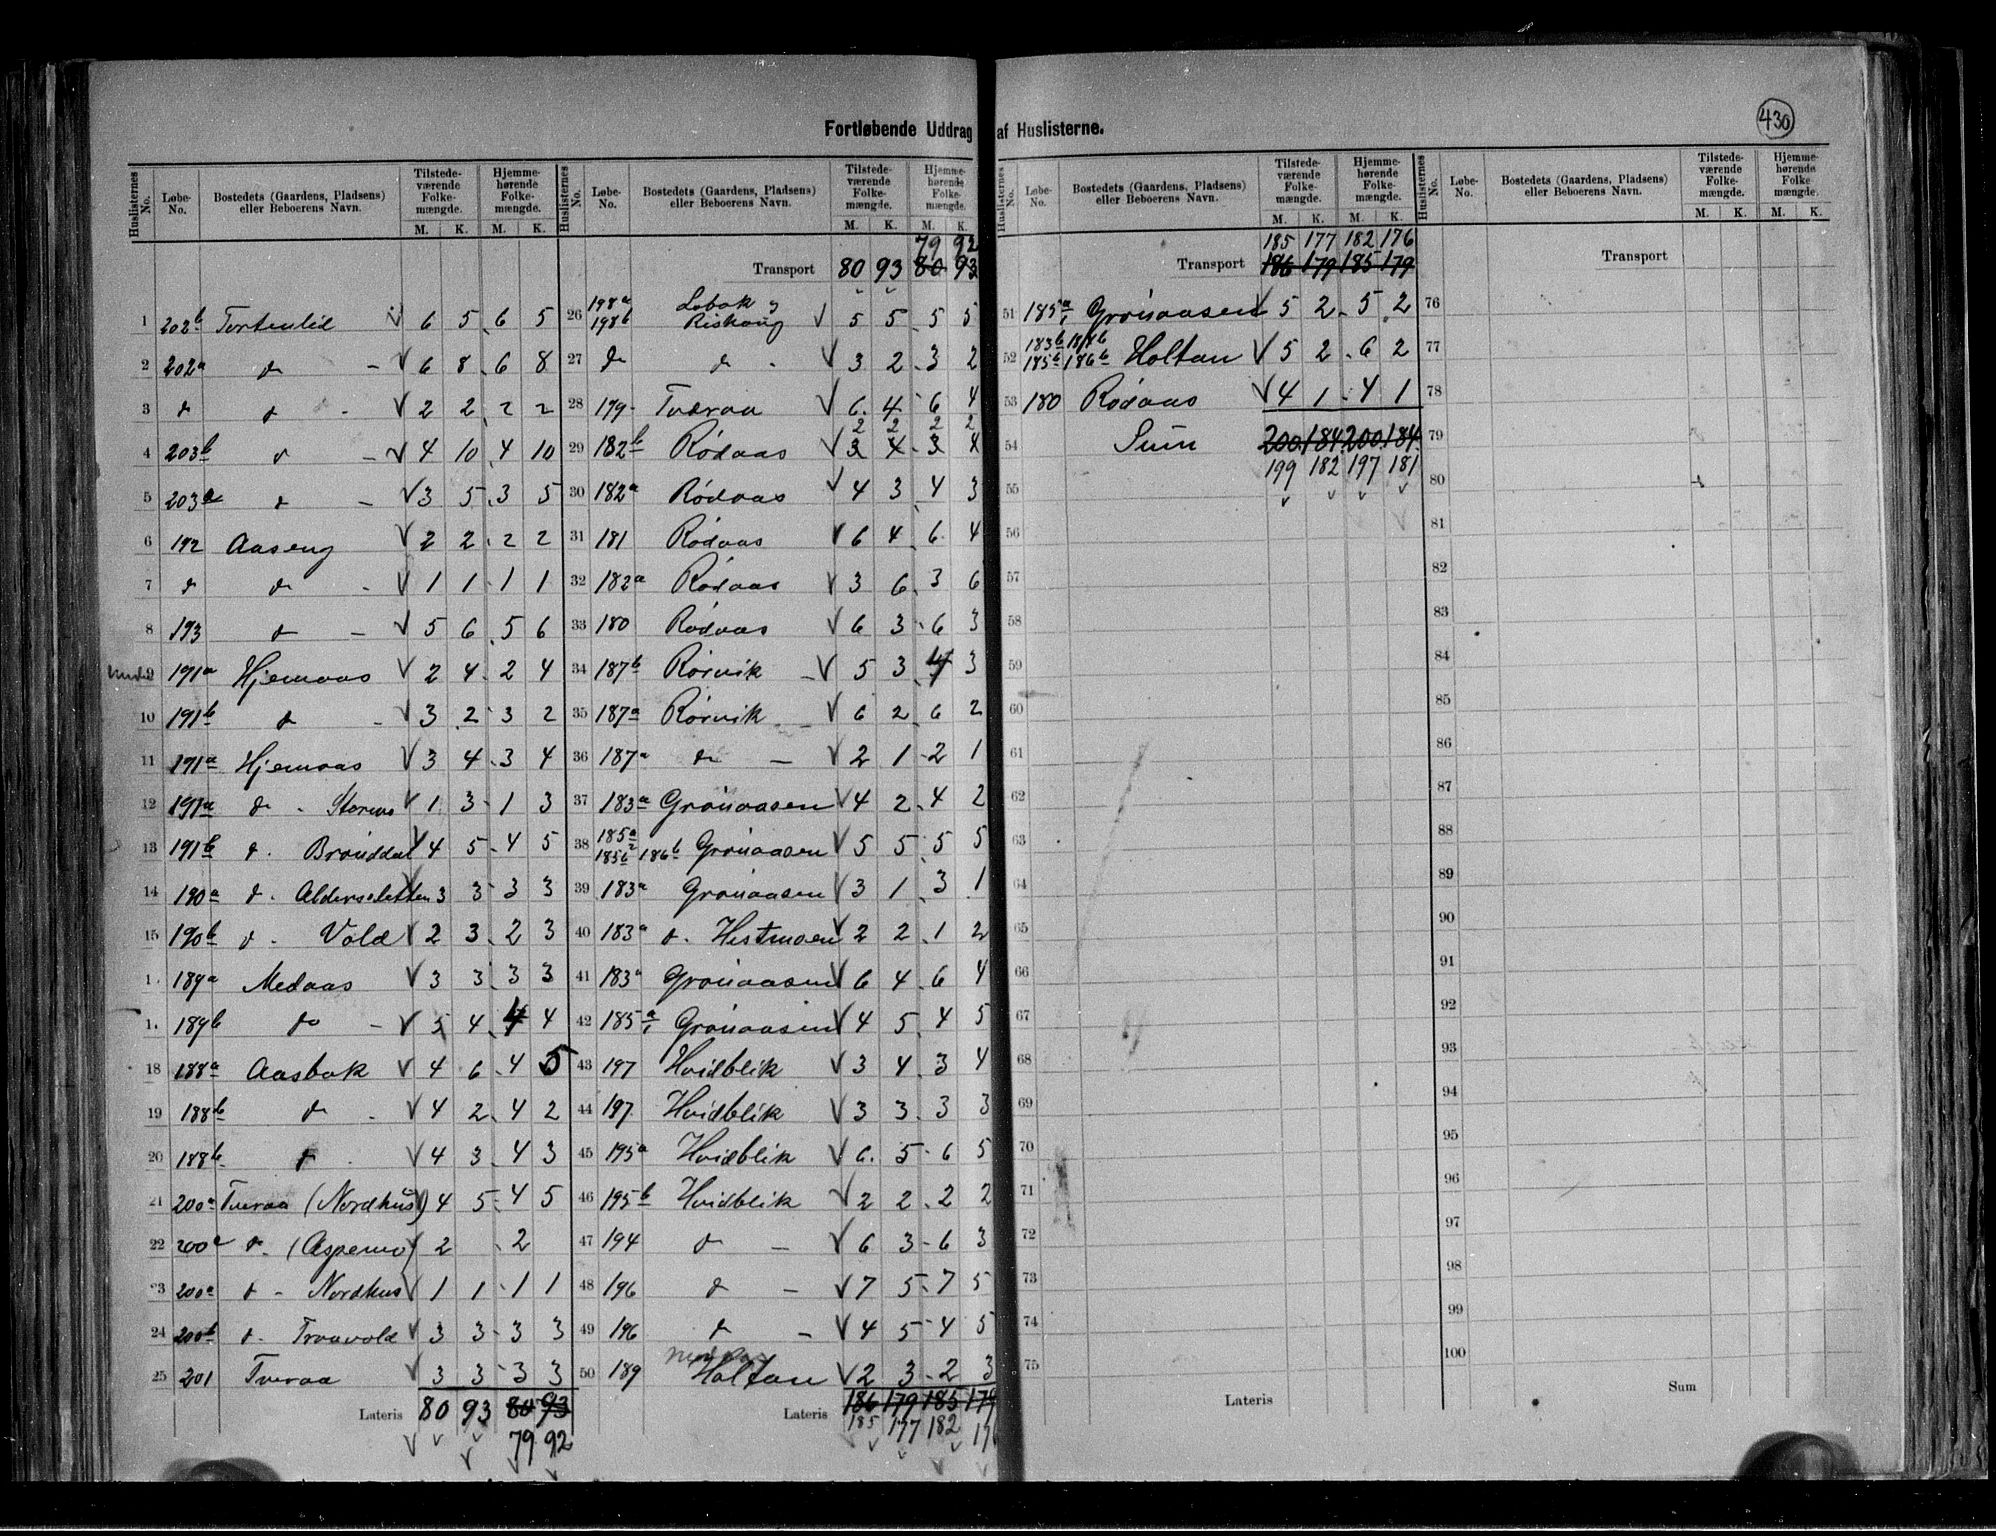 Fortløbende Uddrag af Huslisterne.
430
Huslisternes No. | Løbe-No. | Bostedets (Gaardens, Pladsens) eller Beboerens Navn. | Tilstedeværende Folkemængde. M. K. | Hjemmehørende Folkemængde. M. K.
1 202b Tortenlid V 6 5 6 5
2 202a d - V 6 8 6 8
3 d d - V 2 2 2 2
4 203b d - V 4 10 4 10
5 203a d - V 3 5 3 5
6 192 Aaseng V 2 2 2 2
7 d d - V 1 1 1 1
8 193 d - V 5 6 5 6
9 191a Hjemaas V 2 4 2 4
10 191b d - V 3 2 3 2
11 191a Hjemaas V 3 4 3 4
12 191a d - V 1 3 1 3
13 191b d. Brønddal V 4 5 4 5
14 190a d. Aldersletten 3 3 3 3
15 190b d. Vold V 2 3 2 3
1. 189a Medaas V 3 3 3 3
1. 189b do - V 5 4 4 4
18 188a Aasbak V 4 6 4 5
19 188b d - V 4 2 4 2
20 188b d V 4 3 4 3
21 200a Tveraa (Nordhus) 4 5 4 5
22 200a d. (Aspemo) 2 2
23 200a d - Nordhus V 1 1 1 1
24 200b d. Traavold V 3 3 3 3
25 201 Tveraa V 3 3 3 3
Lateris 80 93 80 93
79 92
79 92
Transport 80 93 80 93
26 198a 198b Løbak og Riskaug V 5 5 5 5
27 d d - V 3 2 3 2
28 179 Tværaa V 6 4 6 4
2 2 2 2
29 182b Rødaas V 3 4 3 4
30 182a Rødaas V 4 3 4 3
31 181 Rødaas V 6 4 6 4
32 182a Rødaas V 3 6 3 6
33 180 Rødaas V 6 3 6 3
34 187b Rørvik - V 5 3 4 3
35 187a Rørvik - V 6 2 6 2
36 187a d - V 2 1 2 1
37 183a Grønaasen V 4 2 4 2
38 185a2 185b 186b Grønaasen V 5 5 5 5
39 183a Grønaasen V 3 1 3 1
40 183a d. Hestmoen V 2 2 1 2
41 183a Grønaasen V 6 4 6 4
42 185a1 Grønaasen V 4 5 4 5
43 197 Hvidblik V 3 4 3 4
44 197 Hvidblik V 3 3 3 3
45 195a Hvidblik V 6 5 6 5
46 195b Hvidblik V 2 2 2 2
47 194 d - V 6 3 6 3
48 196 d - V 7 5 7 5
49 196 d - V 4 5 4 5
50 189 Holtan V 2 3 2 3
Lateris 186 179 185 179
185 177 182 176
185 177 182 176
Transport 186 179 185 179
51 185a1 Grønaasen V 5 2 5 2
52 183b 185b 186b Holtan V 5 2 6 2
53 180 Rødaas V 4 1 4 1
54 Sum 200 184 200 184
199 182 197 181
55
56
57
58
59
60
61
62
63
64
65
66
67
68
69
70
71
72
73
74
75
Lateris
Transport
76
77
78
79
80
81
82
83
84
85
86
87
88
89
90
91
92
93
94
95
96
97
98
99
100
Sum